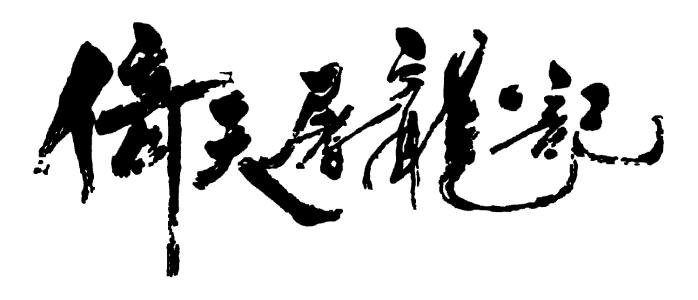 倚天屠龍記